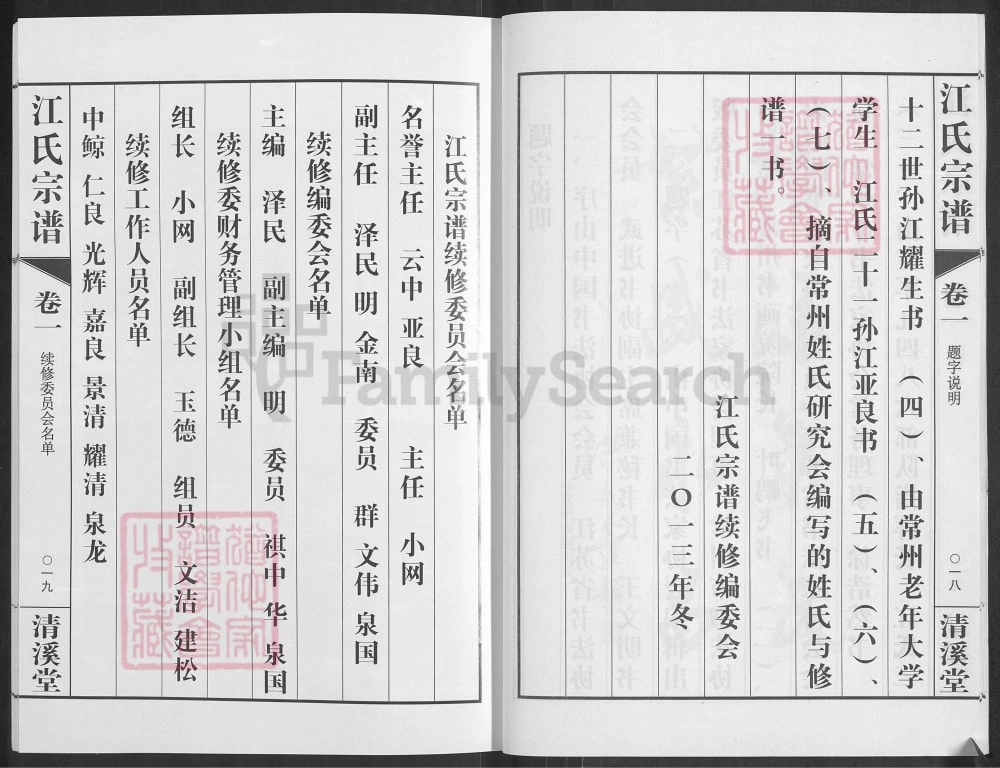 江氏宗谱
卷一
题字说明
〇一八
清溪堂
十二世孙江耀生书（四）、由常州老年大学
学生 江氏二十一孙江亚良书（五）、（六）、
（七）、摘自常州姓氏研究会编写的姓氏与修
谱一书。
江氏宗谱续修编委会
二〇一三年冬
江氏宗谱续修委员会名单
名誉主任 云中 亚良 主任 小网
副主任 泽民 明 金南 委员 群 文伟 泉国
续修编委会名单
主编 泽民 副主编 明 委员 祺中 华 泉国
续修委财务管理小组名单
组长 小网 副组长 玉德 组员 文洁 建松
续修工作人员名单
中鲸 仁良 光辉 嘉良 景清 耀清 泉龙
江氏宗谱
卷一
续修委员会名单
〇一九
清溪堂
FamilySearch